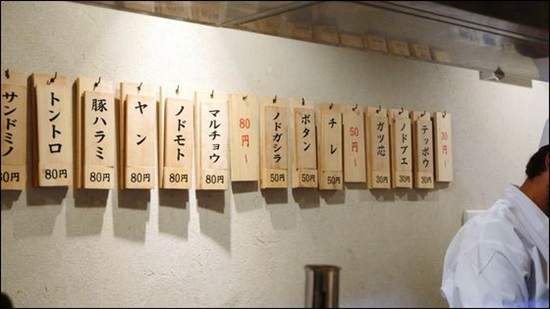 サンドミノ
80円
トントロ
80円
豚ハラミ
80円
ヤン
80円
ノドモト
80円
マルチョウ
80円
80円〜
ノドガシラ
50円
ボタン
50円
チレ
50円
50円〜
ガツ芯
30円
ノドブエ
30円
テッポウ
30円
30円〜